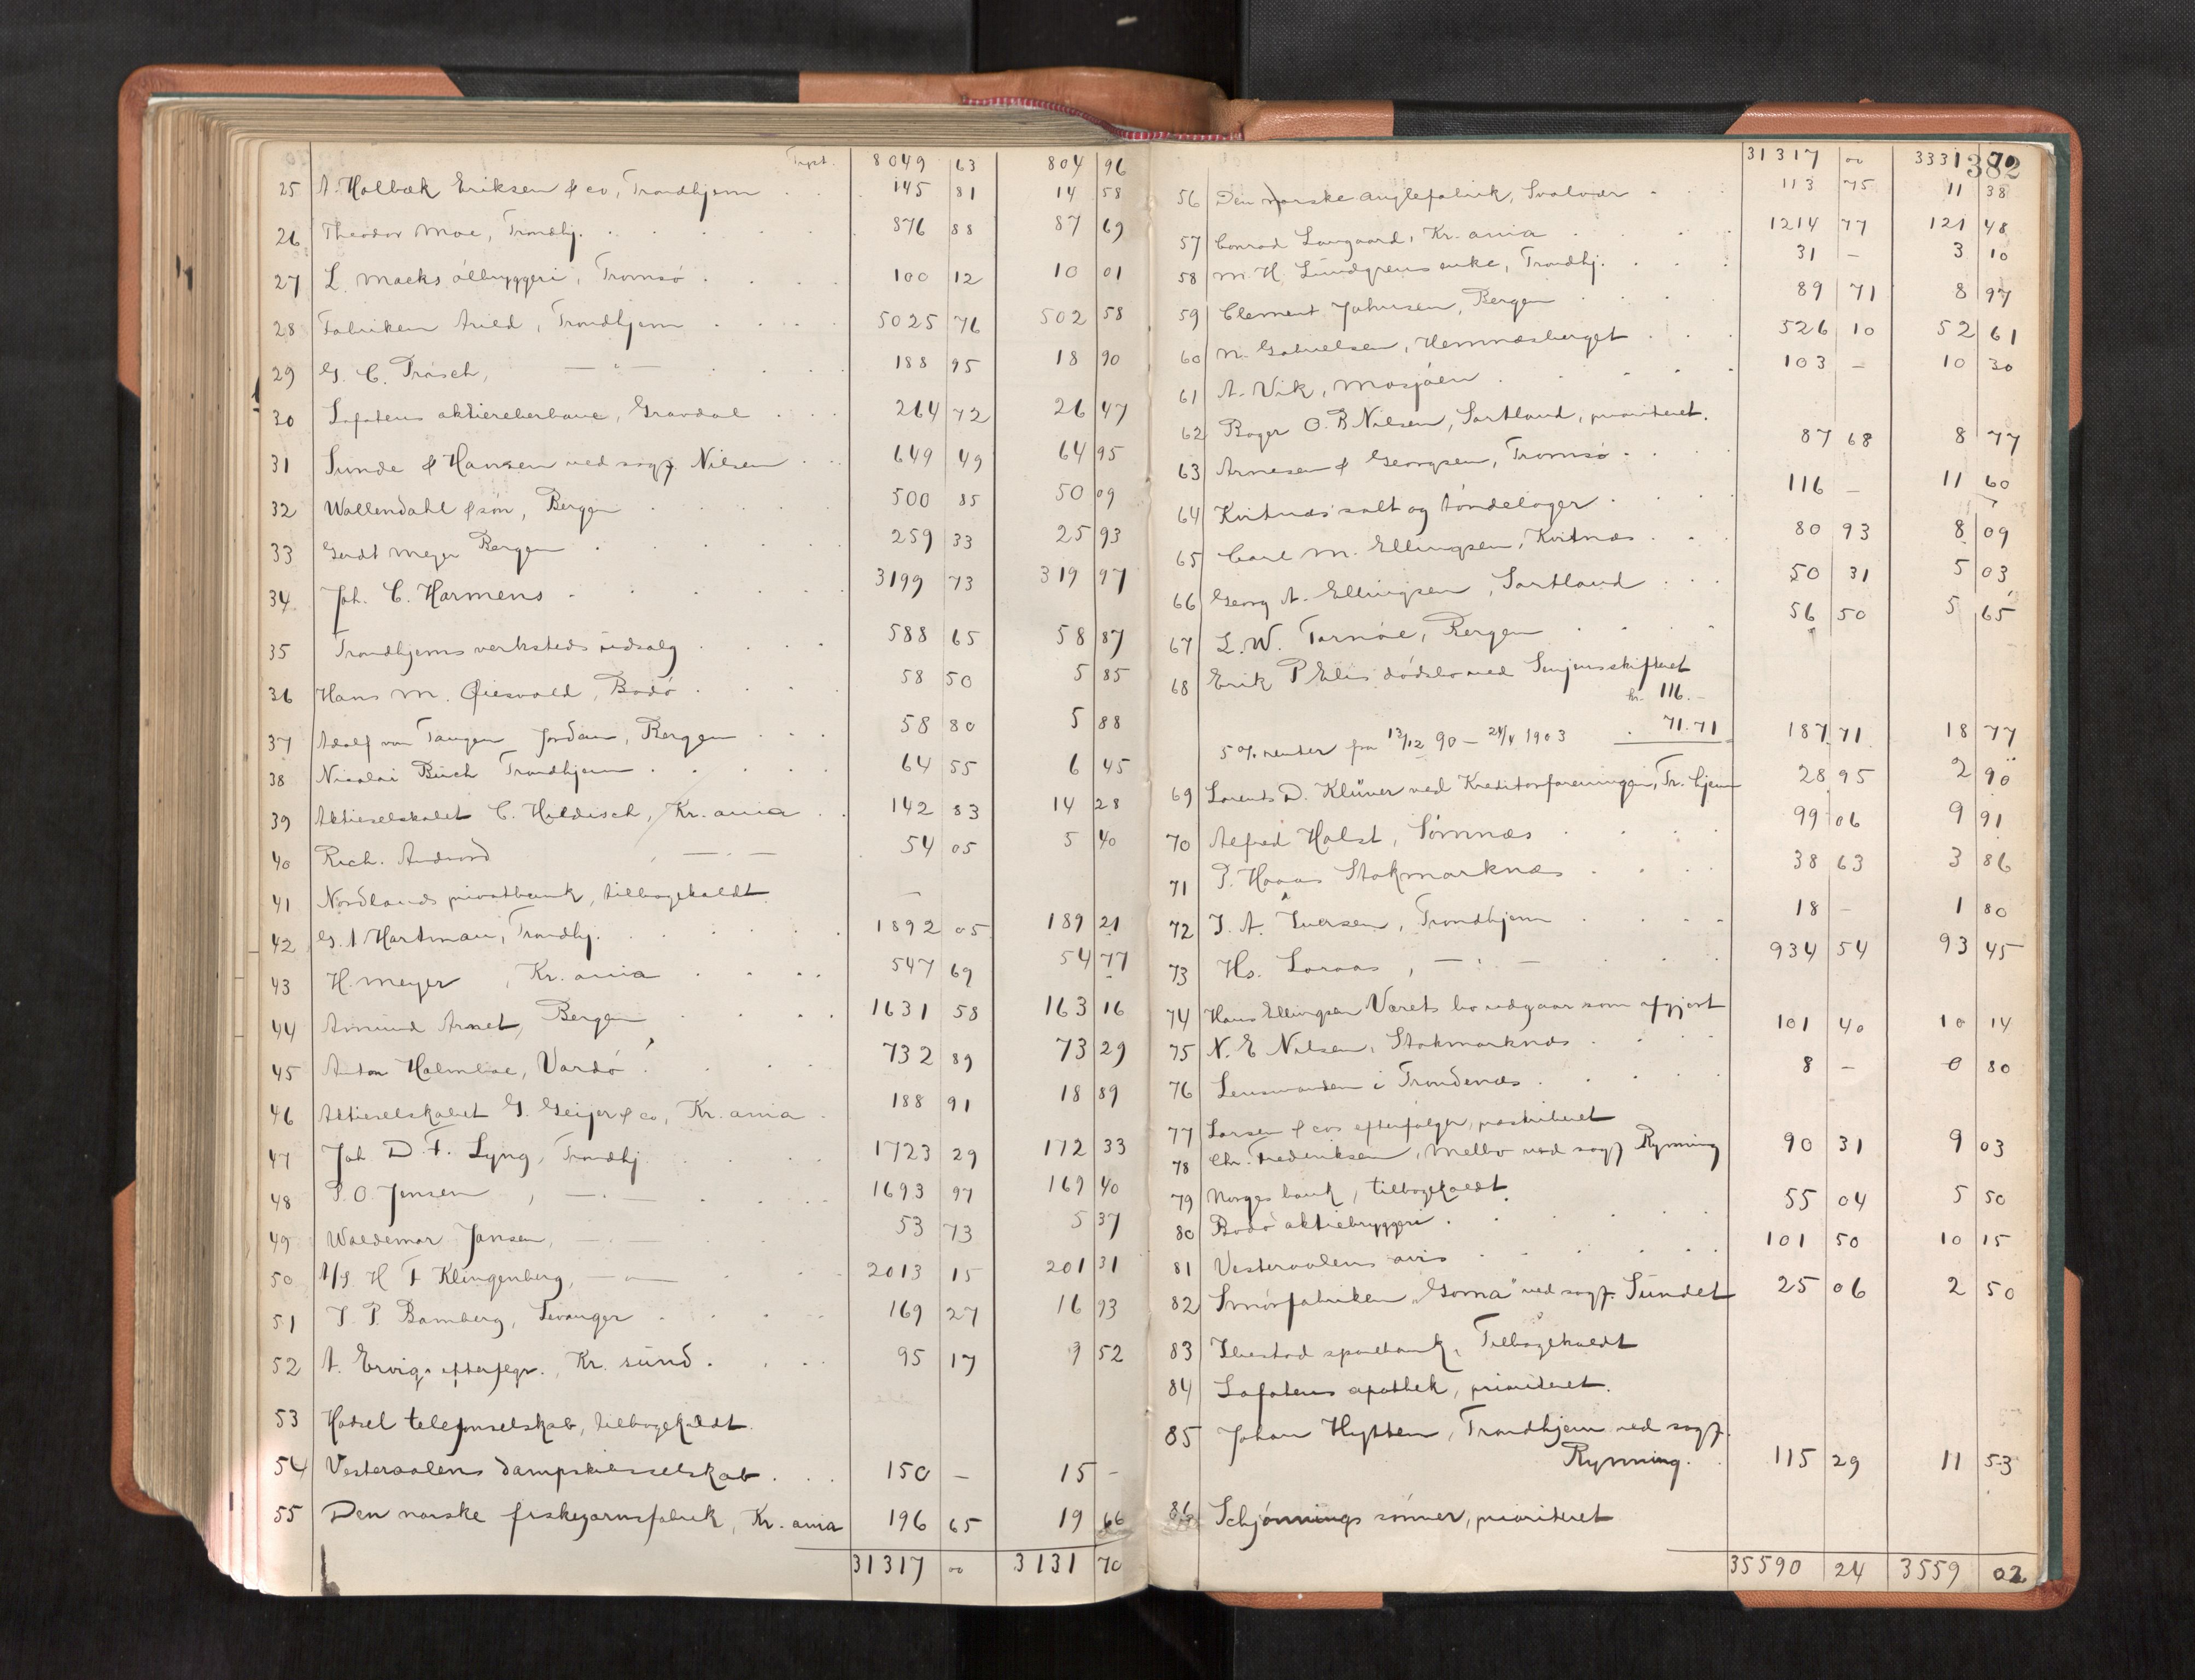 Trpt. 8049 63 804 96
25 A. Holbæk Eriksen & co, Trondhjem . . 145 81 14 58
26 Theodor Moe, Trondhj. . . . . . 876 88 87 69
27 L. Macks ölbryggeri, Tromsö . . . . 100 12 10 01
28 Fabriken Arild, Trondhjem . . . . 5025 76 502 58
29 G. C. Prösch, — " — . . . . 188 95 18 90
30 Lofotens aktiereberbane, Gravdal . . . 264 72 26 47
31 Sunde & Hansen ved sagf. Nilsen . . 649 49 64 95
32 Wallendahl & sön, Bergen . . . . . 500 85 50 09
33 Gerdt Meyer Bergen . . . . . 259 33 25 93
34 Joh. C. Harmens . . . . . . 3199 73 319 97
35 Trondhjems verksteds udsalg . . . . 588 65 58 87
36 Hans M. Øiesvold, Bodö . . . . 58 50 5 85
37 Adolf von Tangen Jordan, Bergen . . . 58 80 5 88
38 Nicolai Buch Trondhjem . . . . . 64 55 6 45
39 Aktieselskabet C. Heldisch, Kr. ania . . 142 83 14 28
40 Rich. Andvord , — . — 54 05 5 40
41 Nordlands privatbank, tilbagekaldt. —
42 G. A Hartman, Trondhj. . . . . . 1892 05 189 21
43 H. Meyer , Kr. ania . . . . 547 69 54 77
44 Amund Arnet, Bergen . . . . 1631 58 163 16
45 Anton Holmboe, Vardö . . . . . 732 89 73 29
46 Aktieselskabet G. Geijer & co, Kr. ania . 188 91 18 89
47 Joh. D. F. Lyng, Trondhj. . . . . 1723 29 172 33
48 P. O. Jensen , — . — . . . 1693 97 169 40
49 Waldemar Jansen, — . — . . 53 73 5 37
50 A/S. H F Klingenberg, — " — . . 2013 15 201 31
51 J. P. Bamberg, Levanger . . . . 169 27 16 93
52 A. Ervigs efterflgr., Kr. sund . . . . 95 17 9 52
53 Hadsel telefonselskab, tilbagekaldt.
54 Vesteraalens dampskibsselskab . . . 150 – 15 –
55 Den norske fiskegarnsfabrik, Kr. ania 196 65 19 66
31317 00 3131 70
382
31317 00 3331 70
56 Den norske anglefabrik, Svolvær . . . 113 75 11 38
57 Conrad Langaard, Kr. ania . . . . 1214 77 121 48
58 M. H. Lundgrens enke, Trondhj. . . . 31 – 3 10
59 Clement Johnsen, Bergen . . . . 89 71 8 97
60 N. Gabrielsen, Hemnæsberget . . . 526 10 52 61
61 A. Vik, Mosjöen . . . . . 103 – 10 30
62 Bager O. B Nilsen, Sortland, prioriteret.
63 Arnesen & Georgsen, Tromsö . . . 87 68 8 77
64 Kvitnæs salt og töndelager . . . . 116 – 11 60
65 Carl M. Ellingsen, Kvitnæs . . . 80 93 8 09
66 Georg A. Ellingsen, Sortland . . . 50 31 5 03
67 L. W. Tornöe, Bergen . . . . 56 50 5 65
68 Erik P Elis dödsbo ved Senjens skifteret
kr. 116.-
5 % renter fra 13/12 90 – 24/4 1903 . 71.71 187 71 18 77
69 Lorents D. Klüver ved Kreditorforeningen, Tr. hjem 28 95 2 90
70 Alfred Holst, Sömnæs . . . . 99 06 9 91
71 P. Haaas Stokmarknæs . . . . 38 63 3 86
72 J. A. Iversen, Trondhjem . . . . 18 – 1 80
73 Hs. Loraas, — : — . . . 934 54 93 45
74 Hans Ellingsen Værets bo udgaar som afgjort
75 N. E Nilsen, Stokmarknæs . . . . 101 40 10 14
76 Lensmanden i Trondenæs . . . . . 8 – 0 80
77 Larsen & cos efterfölger, prioriteret
78 Chr. Frederiksen, Melbo ved sagf Rynning 90 31 9 03
79 Norges bank, tilbagekaldt.
80 Bodö aktiebryggeri . . . . . 55 04 5 50
81 Vesteraalens avis . . . . . 101 50 10 15
82 Smörfabriken "Goma" ved sagf. Sundet 25 06 2 50
83 Ibestad sparebank, Tilbagekaldt
84 Lofotens apothek, prioriteret.
85 Johan Hytten, Trondhjem ved sagf.
Rynning. . 115 29 11 53
86 Schjönnings sönner, prioriteret
35590 24 3559 02